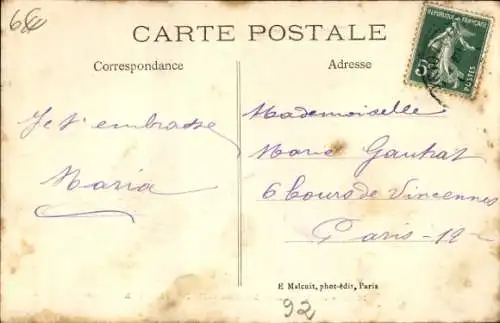 68
CARTE POSTALE
REPUBLIQUE FRANÇAISE
5c
POSTES
Correspondance
Adresse
Je t'embrasse
Maria
Mademoiselle
Marie Gautrat
6 Cours de Vincennes
Paris-12-
E Malcuit, phot-édit, Paris
92